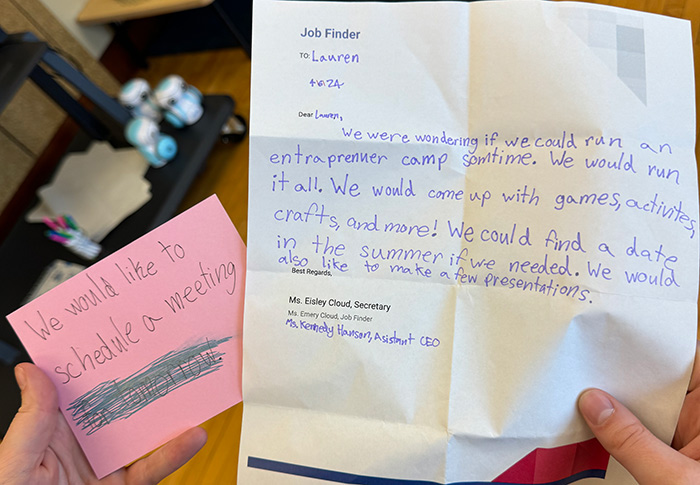 Job Finder
TO: Lauren
4/6/24
Dear Lauren,
We were wondering if we could run an
entraprenuer camp somtime. We would run
it all. We would come up with games, activites,
crafts, and more! We could find a date
in the summer if we needed. We would
also like to make a few presentations.
Best Regards,
Ms. Eisley Cloud, Secretary
Ms. Emery Cloud, Job Finder
Ms. Kennedy Hanson, Asistant CEO
We would like to
schedule a meeting
tomorrow.